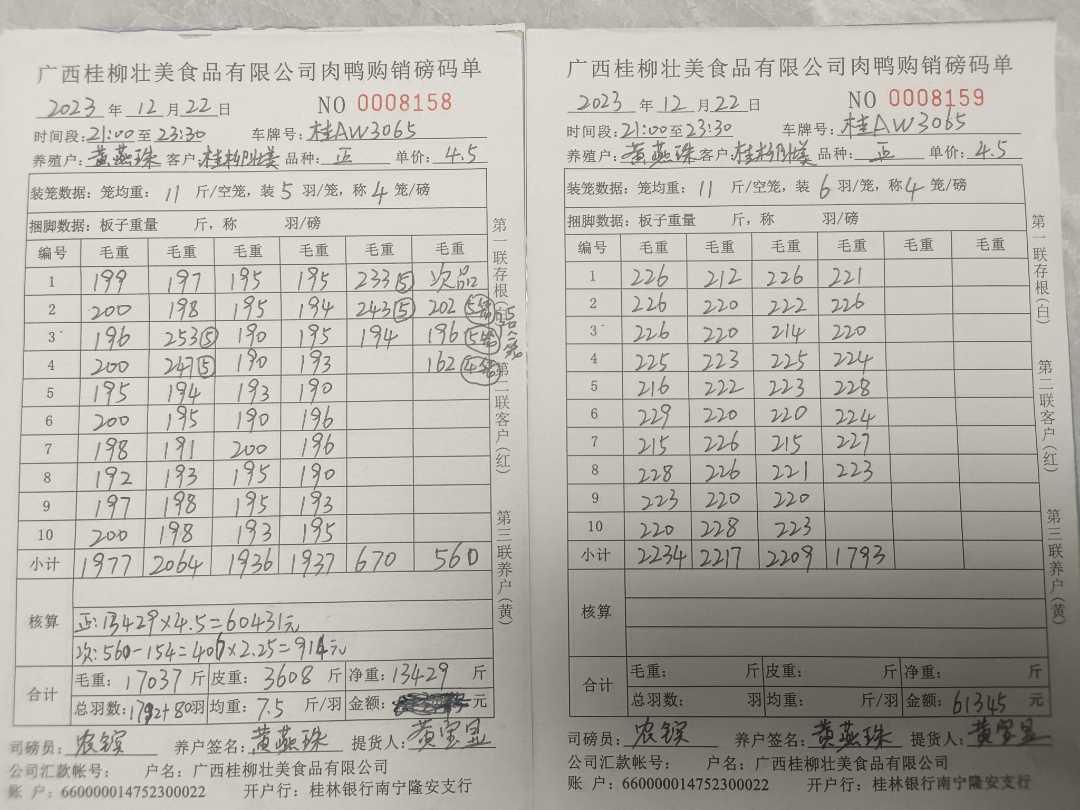 广西桂柳壮美食品有限公司肉鸭购销磅码单
2023 年 12 月 22 日 NO 0008158
时间段: 21:00 至 23:30 车牌号: 桂AW3065
养殖户: 黄燕珠 客户: 桂柳壮美 品种: 正 单价: 4.5
装笼数据: 笼均重: 11 斤/空笼，装 5 羽/笼，称 4 笼/磅
捆脚数据: 板子重量 斤，称 羽/磅
编号 毛重 毛重 毛重 毛重 毛重 毛重
1 199 197 195 195 233 5 次品
2 200 198 195 194 243 5 202 5笼
3 196 253 5 190 195 194 196 5笼
4 200 247 5 190 193 162 4笼
5 195 194 193 190
6 200 195 190 196
7 198 191 200 196
8 192 193 195 190
9 197 198 195 193
10 200 198 193 195
小计 1977 2064 1936 1937 670 560
核算
正: 13429×4.5=60431元
次: 560-154=406×2.25=914元
合计 毛重: 17037 斤 皮重: 3608 斤 净重: 13429 斤
总羽数: 1792+80 羽 均重: 7.5 斤/羽 金额: 元
司磅员: 农镔 养户签名: 黄燕珠 提货人: 黄宝
公司汇款帐号: 户名: 广西桂柳壮美食品有限公司
账 户: 660000014752300022 开户行: 桂林银行南宁隆安支行
第一联存根(白) 第二联客户(红) 第三联养户(黄)
广西桂柳壮美食品有限公司肉鸭购销磅码单
2023 年 12 月 22 日 NO 0008159
时间段: 21:00 至 23:30 车牌号: 桂AW3065
养殖户: 黄燕珠 客户: 桂柳壮美 品种: 正 单价: 4.5
装笼数据: 笼均重: 11 斤/空笼，装 6 羽/笼，称 4 笼/磅
捆脚数据: 板子重量 斤，称 羽/磅
编号 毛重 毛重 毛重 毛重 毛重 毛重
1 226 212 226 221
2 226 220 222 226
3 226 220 214 220
4 225 223 225 224
5 216 222 223 228
6 229 220 220 224
7 215 226 215 227
8 228 226 221 223
9 223 220 220
10 220 228 223
小计 2234 2217 2209 1793
核算
合计 毛重: 斤 皮重: 斤 净重: 斤
总羽数: 羽 均重: 斤/羽 金额: 61345 元
司磅员: 农镔 养户签名: 黄燕珠 提货人: 黄宝
公司汇款帐号: 户名: 广西桂柳壮美食品有限公司
账 户: 660000014752300022 开户行: 桂林银行南宁隆安支行
第一联存根(白) 第二联客户(红) 第三联养户(黄)